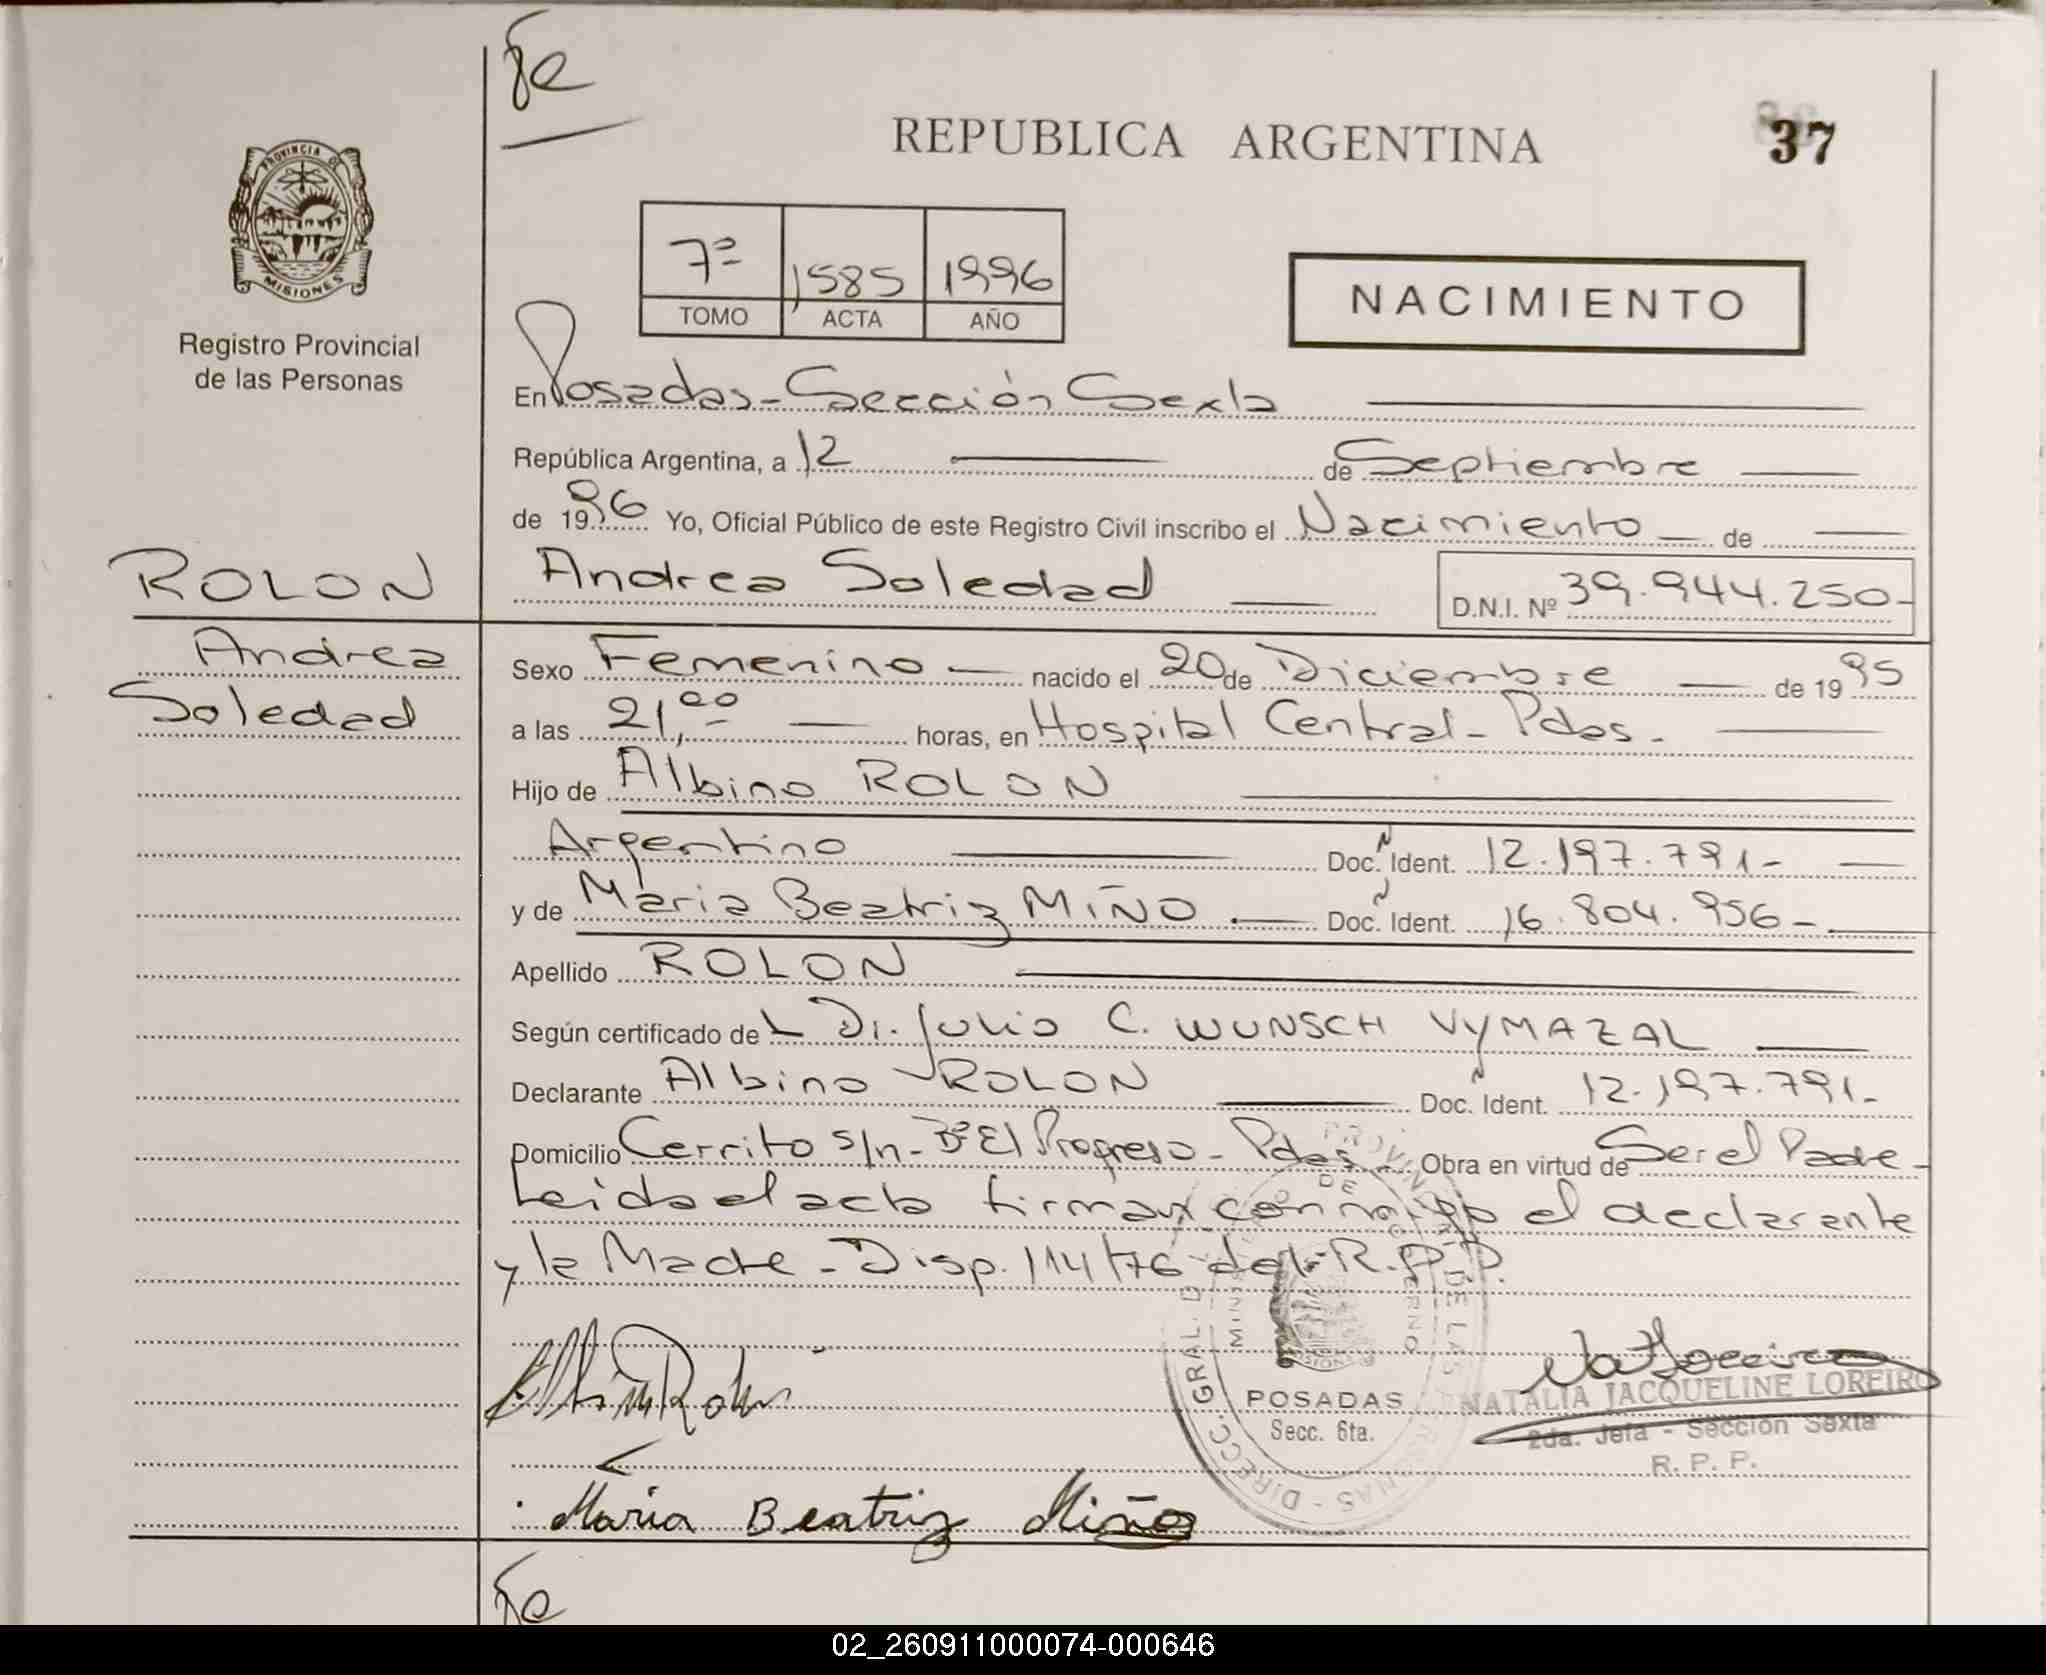 fe
REPUBLICA ARGENTINA
37
PROVINCIA DE
MISIONES
Registro Provincial
de las Personas
7º 1585 1996
TOMO ACTA AÑO
NACIMIENTO
En Posadas - Sección Sexta
República Argentina, a 12 de Septiembre
de 1996 Yo, Oficial Público de este Registro Civil inscribo el Nacimiento de
ROLON Andrea Soledad D.N.I. Nº 39.944.250-
Andrea Sexo Femenino nacido el 20 de Diciembre de 1995
Soledad a las 21,00 horas, en Hospital Central - Pdas.
Hijo de Albino ROLON
Argentino Doc. Ident. 12.197.791-
y de Maria Beatriz MIÑO. Doc. Ident. 16.804.956-
Apellido ROLON
Según certificado de L Dr. Julio C. WUNSCH VYMAZAL
Declarante Albino ROLON Doc. Ident. 12.197.791-
Domicilio Cerrito s/n - Bº El Progreso - Pdas - Obra en virtud de Ser el Padre -
Leida el acta firman conmigo el declarante
y la Madre - Disp. 114/76 del R.P.P.
Albino Rolon
NATALIA JACQUELINE LOREIRO
2da. Jefa - Sección Sexta
R. P. P.
POSADAS
Secc. 6ta.
Maria Beatriz Miño
fe
02_260911000074-000646